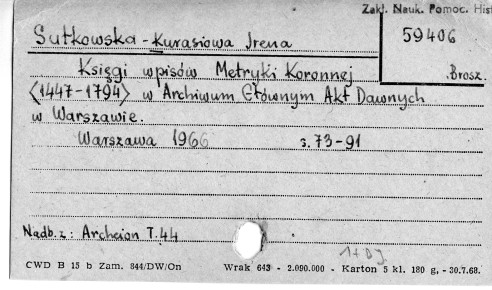 Zakł. Nauk. Pomoc. Hist
Sułkowska-Kurasiowa Irena
59406
Brosz.
Księgi wpisów Metryki Koronnej
<1447-1794> w Archiwum Głównym Akt Dawnych
w Warszawie.
Warszawa 1966 s. 73-91
Nadb. z: Archeion T. 44
CWD B 15 b Zam. 844/DW/On Wrak 643 - 2.090.000 - Karton 5 kl. 180 g, - 30.7.68.